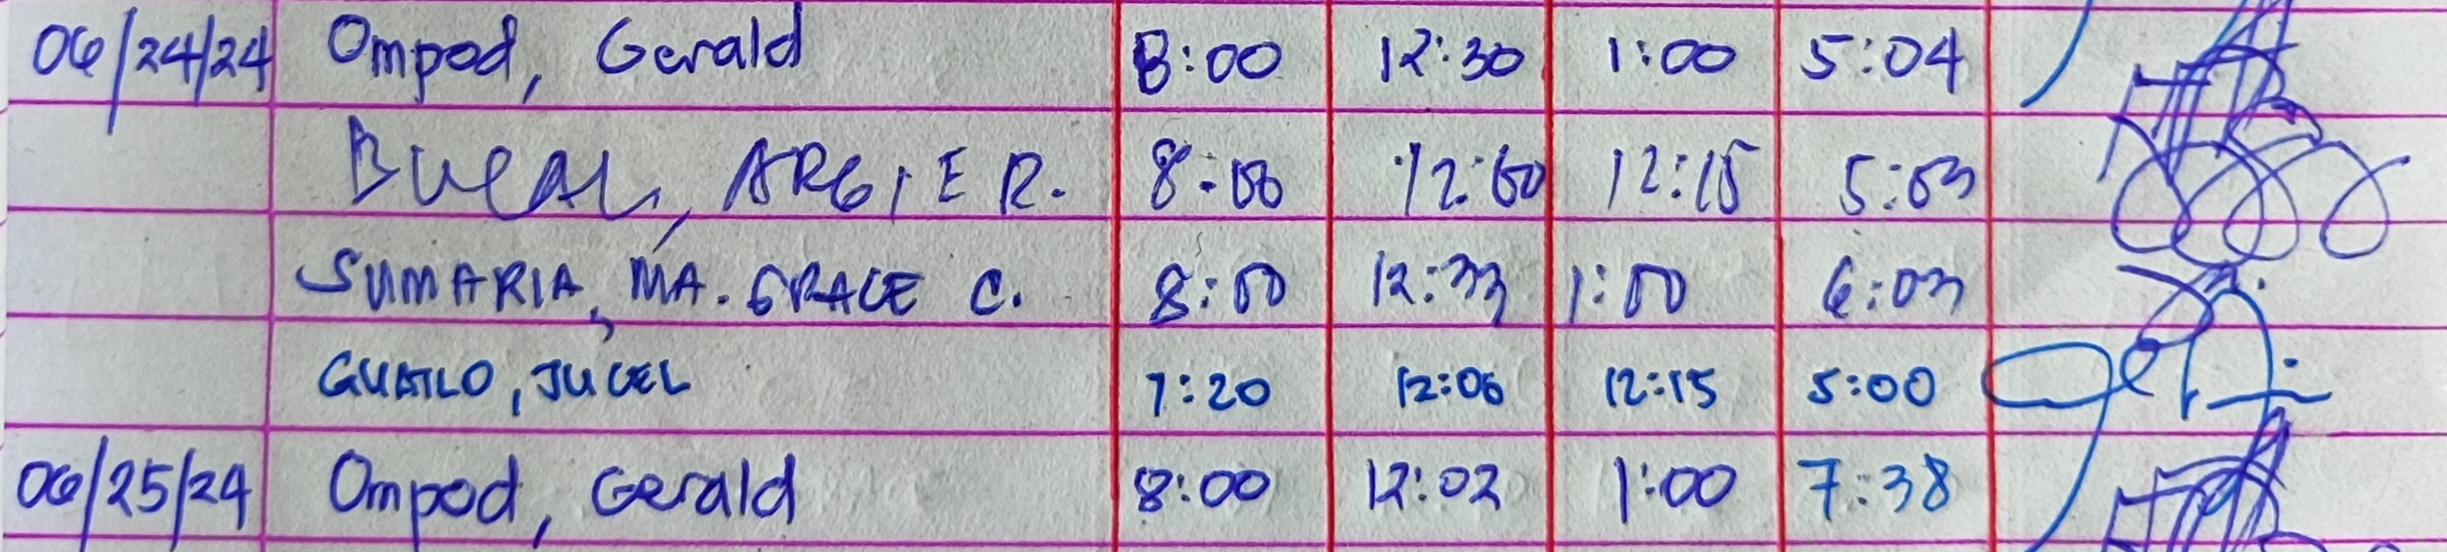 06/24/24 Ompod, Gerald 8:00 12:30 1:00 5:04
BUCAL, ARGIE R. 8:00 12:00 12:15 5:03
SUMARIA, MA. GRACE C. 8:00 12:33 1:00 6:03
GUATLO, JUCEL 7:20 12:06 12:15 5:00
06/25/24 Ompod, Gerald 8:00 12:02 1:00 7:38